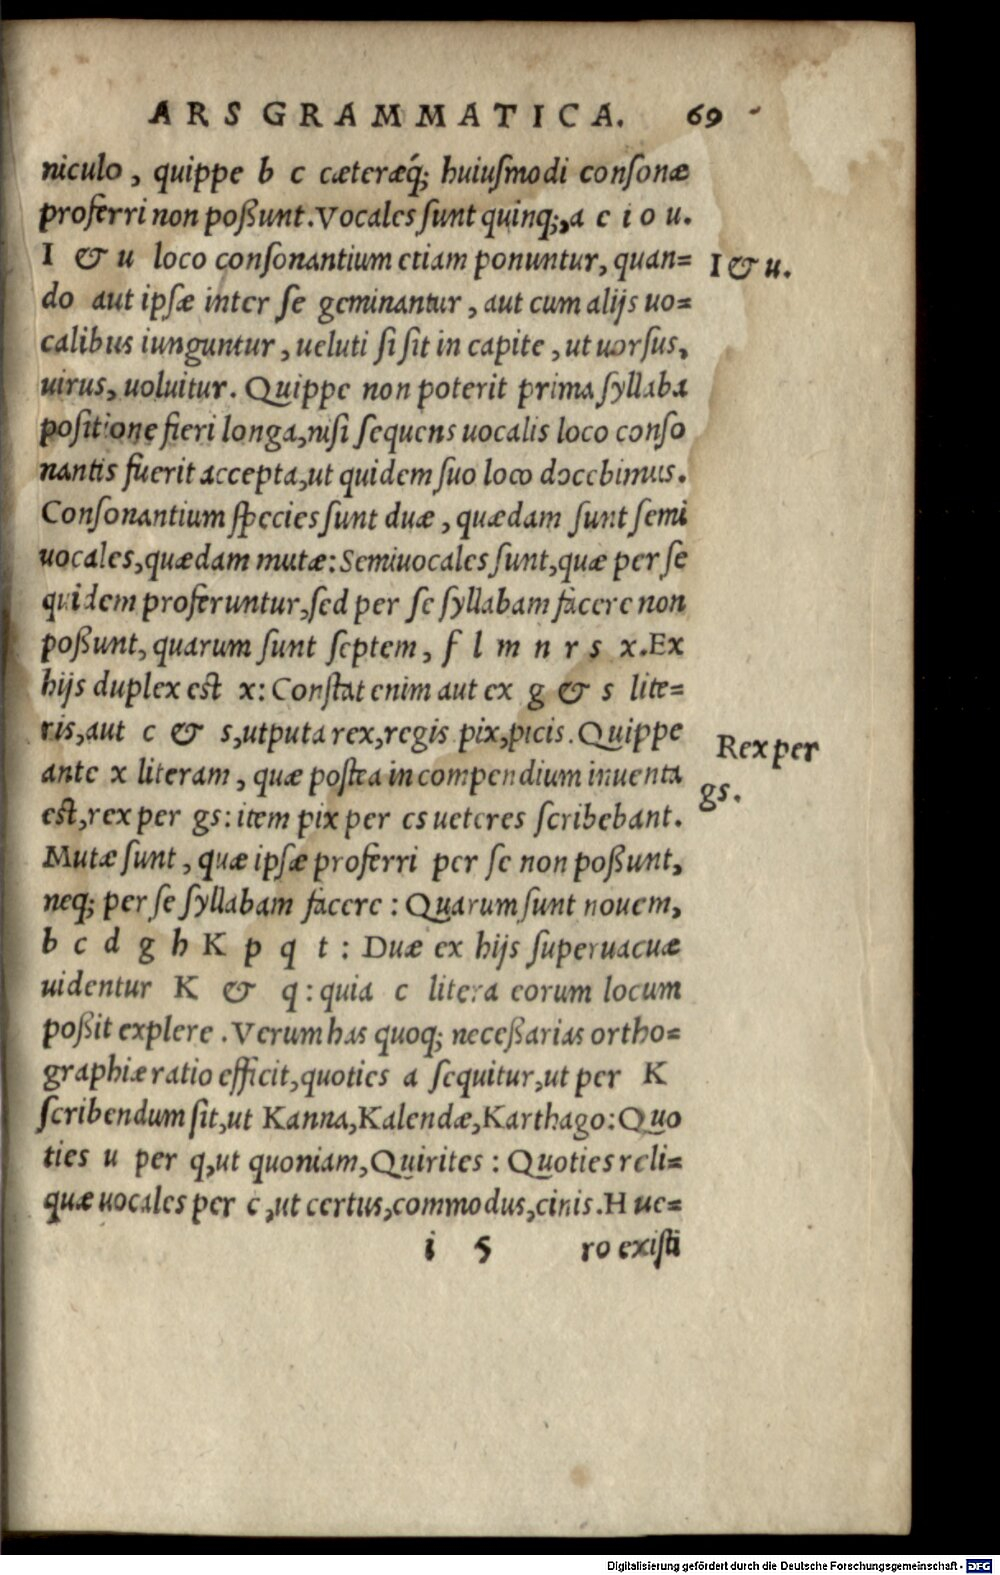 ARS GRAMMATICA. 69
niculo, quippe b c cæteræq́; huiuſmodi conſonæ
proferri non poßunt. Vocales ſunt quinq;, a e i o u.
I & u loco conſonantium etiam ponuntur, quan=
I & u.
do aut ipſæ inter ſe geminantur, aut cum alijs uo=
calibus iunguntur, ueluti ſi ſit in capite, ut uorſus,
uirus, uoluitur. Quippe non poterit prima ſyllaba
poſitione fieri longa, niſi ſequens uocalis loco conſo
nantis fuerit accepta, ut quidem ſuo loco docebimus.
Conſonantium ſpecies ſunt duæ, quædam ſunt ſemi
uocales, quædam mutæ: Semiuocales ſunt, quæ per ſe
quidem proferuntur, ſed per ſe ſyllabam facere non
poßunt, quarum ſunt ſeptem, f l m n r s x. Ex
hijs duplex eſt x: Conſtat enim aut ex g & s lite=
ris, aut c & s, utputa rex, regis pix, picis. Quippe
Rex per
ante x literam, quæ poſtea in compendium inuenta
gs.
eſt, rex per gs: item pix per cs ueteres ſcribebant.
Mutæ ſunt, quæ ipſæ proferri per ſe non poßunt,
neq; per ſe ſyllabam facere: Quarum ſunt nouem,
b c d g h K p q t: Duæ ex hijs ſuperuacuæ
uidentur K & q: quia c litera eorum locum
poßit explere. Verum has quoq; neceßarias ortho=
graphiæ ratio efficit, quoties a ſequitur, ut per K
ſcribendum ſit, ut Kanna, Kalendæ, Karthago: Quo
ties u per q, ut quoniam, Quirites: Quoties reli=
quæ uocales per c, ut certus, commodus, cinis. H ue=
i 5 ro exiſti
Digitalisierung gefördert durch die Deutsche Forschungsgemeinschaft - DFG